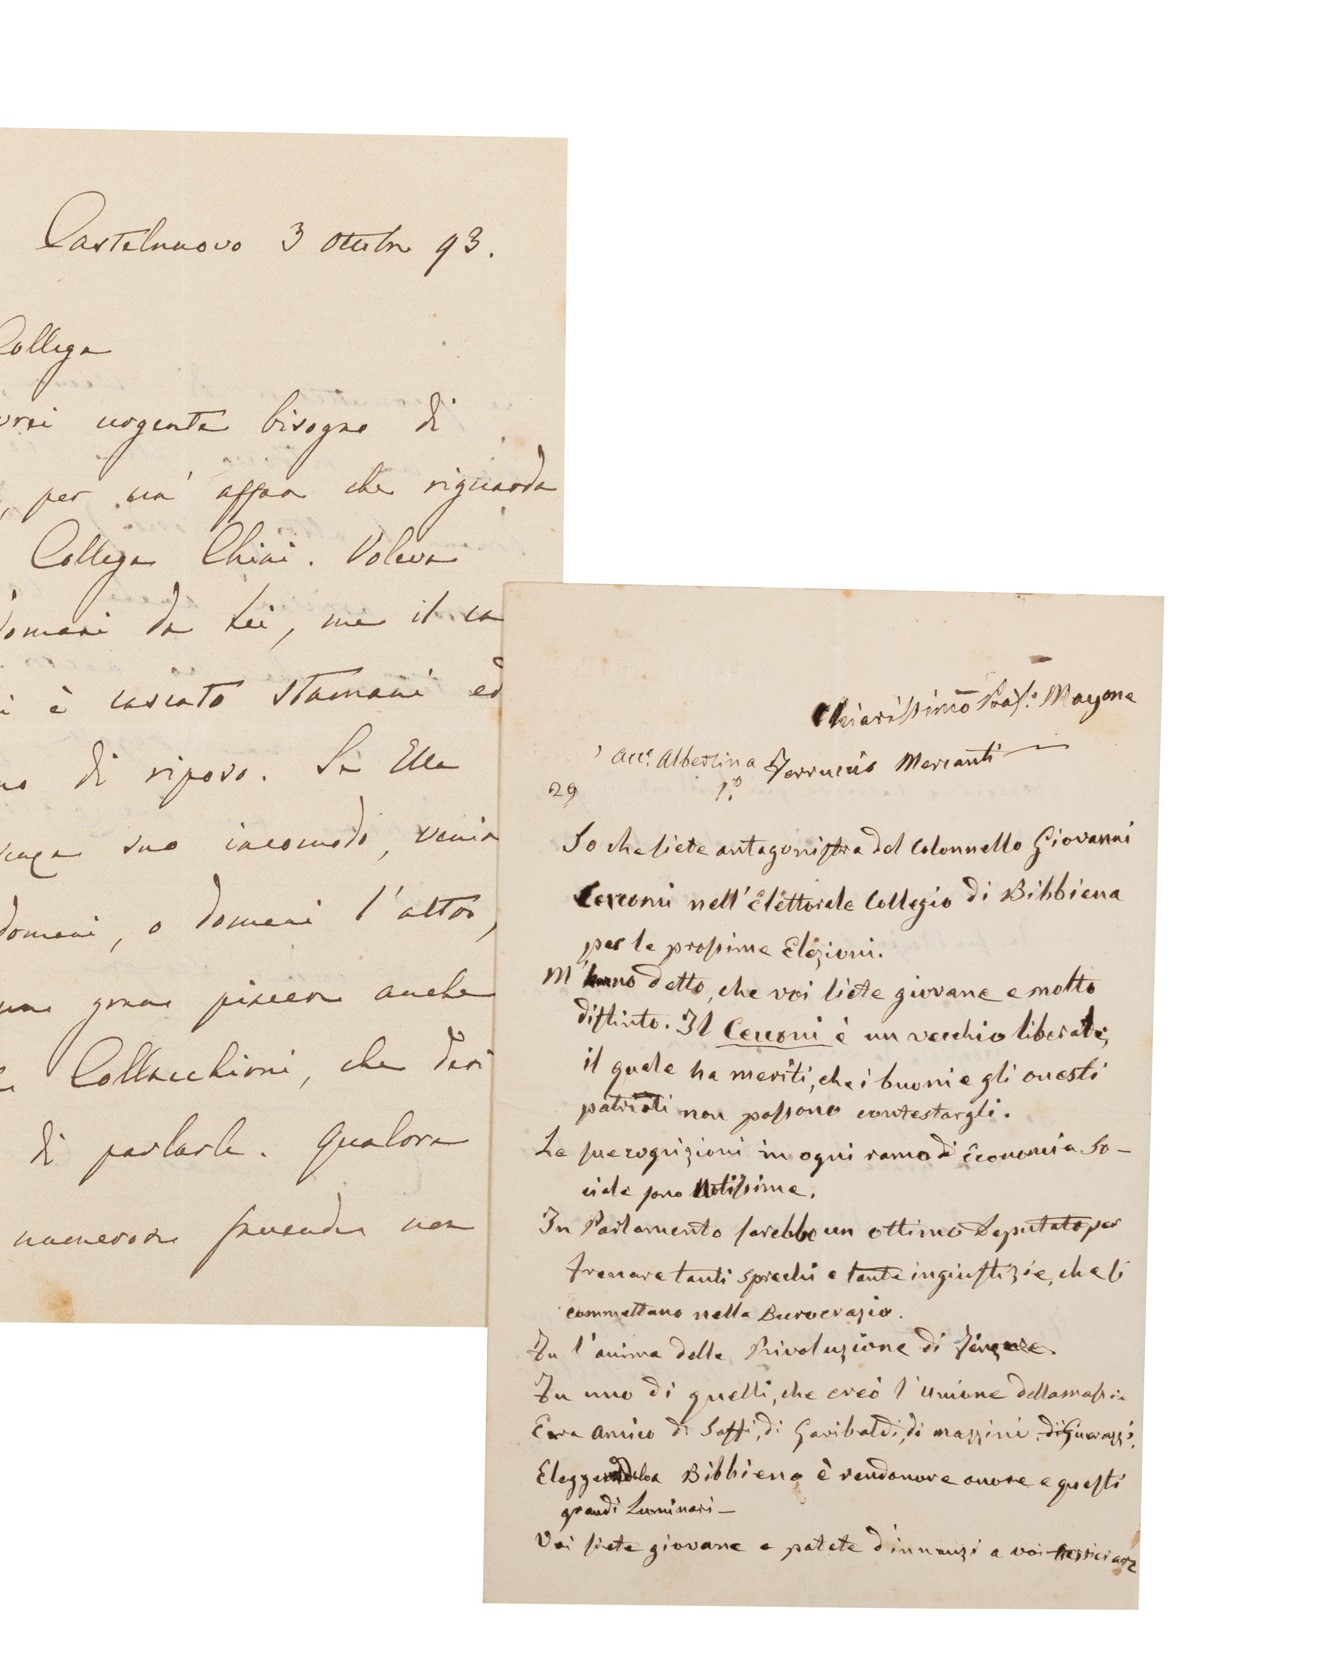 Castelnuovo 3 ottobre 93.
Collega
urgente bisogno di
, per un' affare che riguarda
Collega Chini. Voleva
domani da Lei, ma il ca
i è cascato stamani ed
di riposo. Se Ella
senza suo incomodo, venir
domani, o domani l'altro,
gran piacere anche
Collacchioni, che deri
di parlarle. Qualora
numerose faccende non
Chiarissimo Prof.e Magona
Acc.e Albertina Ferruccio Mercanti
29 1.o
So che siete antagonista del Colonnello Giovanni
Cecconi nell'Elettorale Collegio di Bibbiena
per le prossime Elezioni.
M'hanno detto, che voi siete giovane e molto
distinto. Il Cecconi è un vecchio liberale,
il quale ha meriti, che i buoni e gli onesti
patrioti non possono contestargli.
Le sue cognizioni in ogni ramo di Economia So-
ciale sono notissime.
In Parlamento sarebbe un ottimo Deputato per
frenare tanti sprechi e tante ingiustizie, che si
commettano nella Burocrazia.
Fu l'anima della Rivoluzione di Firenze.
Fu uno di quelli, che creò l'Unione della
Era amico di Saffi, di Garibaldi, di Mazzini, di Guerazzi.
Bibbiena è rendonore onore a questi
grandi Luminari —
Voi siete giovane e potete d'innanzi a voi